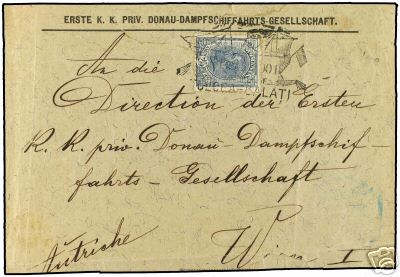 ERSTE K. K. PRIV. DONAU-DAMPFSCHIFFAHRTS-GESELLSCHAFT.
An die
GALATI
Direction der Ersten
K. K. priv. Donau-Dampfschif-
fahrts-Gesellschaft
Autriche
Wien I